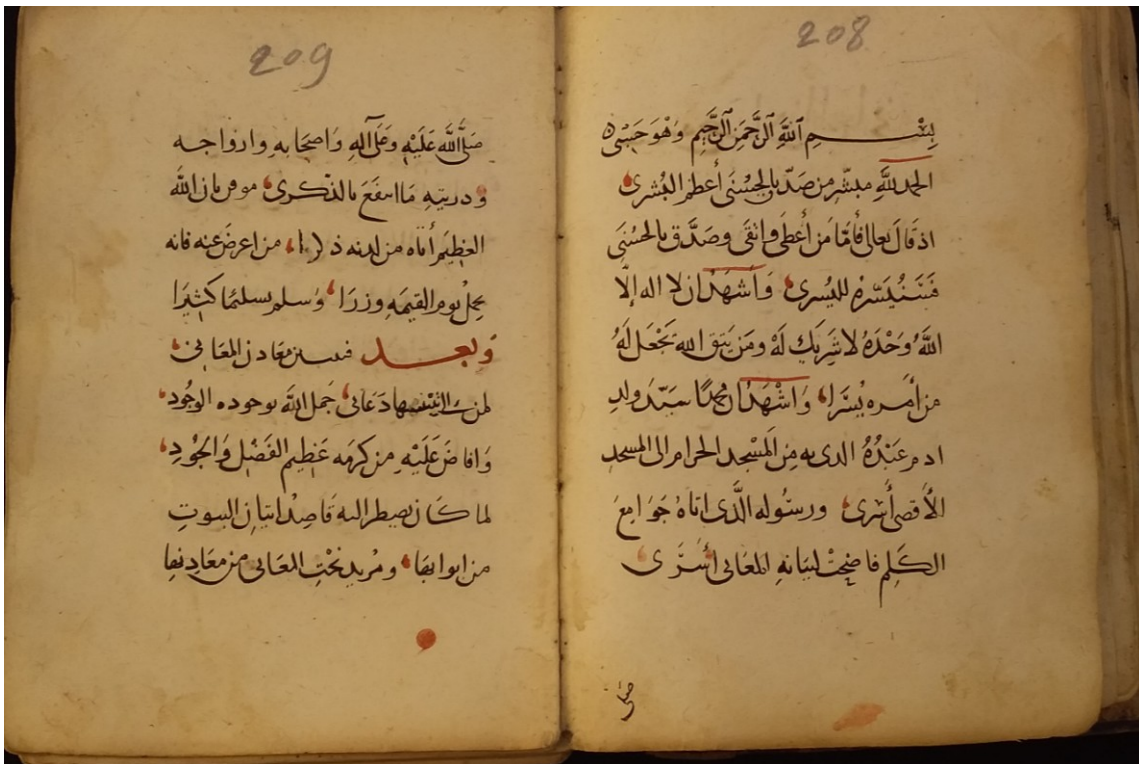 208
بِسْمِ اللَّهِ الرَّحْمَنِ الرَّحِيمِ وَهُوَ حَسْبِى
الحمد للَّهِ مبشّر من صَدّق بالحُسْنَى أعظم البُشرى
اذ قَالَ تعالى فَأمّا مَن أَعطَى واتقى وصَدَّق بالحُسْنَى
فَسَنُيَسّرهُ لليُسرى وَأشهَدُ ان لا اله إلَّا
اللَّهُ وَحْدَهُ لا شَرِيكَ لَهُ ومَن يَتق الله يَجْعَل لَهُ
من أمره يُسْرًا وَاشْهَدُ ان محمدًا سيّد ولدِ
ادم عَبْدُهُ الذى به مِن المَسْجد الحرام الى المسجد
الأقصى أَسْرى ورسُوله الَّذى اتاهُ جَوَامعَ
الكَلِم فاضحتْ لبيَانهِ المعَانى أَسْرَى
صَلى
209
صَلَّى اللَّه عَلَيْهِ وَعَلَى آلهِ وَاصحَابهِ وازواجه
وذريتِهِ مَا انتفَعَ بالذكرى موقن بان اللَّه
العَظِيمَ أتاه من لدنه ذكرا من اعرضَ عنه فانه
يحمِلُ يوم القيمَهِ وزرَا وَسلم تسليمًا كثيرَا
وَبعد معَادن المعَانى
لمن دَعَانى جَمل اللَّه بوجوده الوجُود
وَافاضَ عَلَيْهِ من كرمه عَظِيم الفَضْل وَالجُودِ
لما كَان يضطر اليه قَاصِدُ اتيان البيوتِ
من ابوابهَا ومُريد نَحْتِ المعَانى من معَادِنهَا